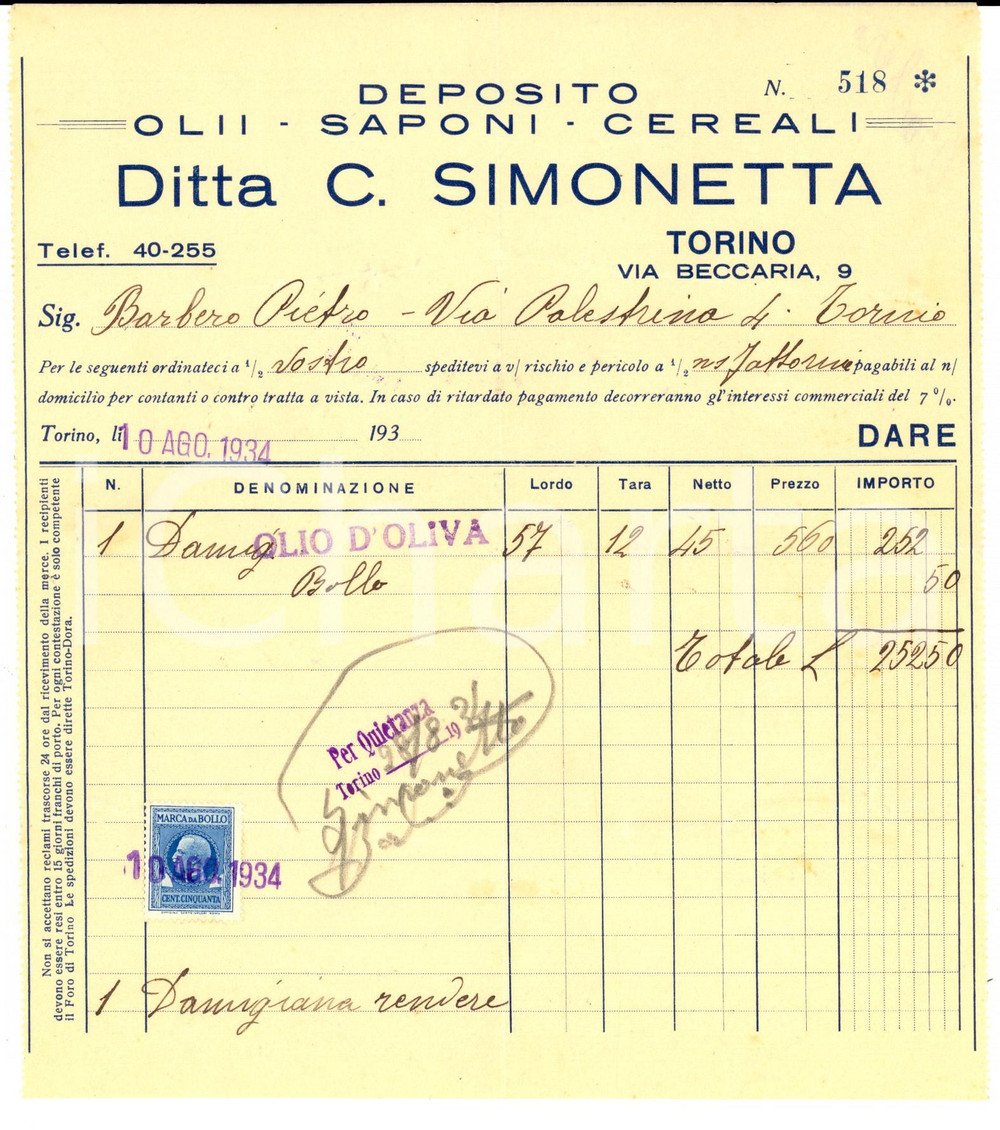 DEPOSITO
N. 518 ✻
OLII - SAPONI - CEREALI
Ditta C. SIMONETTA
Telef. 40-255
TORINO
VIA BECCARIA, 9
Sig. Barbero Piétro - Via Palestrina 4. Torino
Per le seguenti ordinateci a ½ Vostro speditevi a v/ rischio e pericolo a ½ ns/ fattorino pagabili al n/
domicilio per contanti o contro tratta a vista. In caso di ritardato pagamento decorreranno gl'interessi commerciali del 7 %.
Torino, li 10 AGO. 1934 193
DARE
N. DENOMINAZIONE Lordo Tara Netto Prezzo IMPORTO
1 Damig OLIO D'OLIVA 57 12 45 560 252
Bollo 50
Totale L 25250
Per Quietanza
Torino 28/8 1934
Simonetta
MARCA DA BOLLO
10 AGO. 1934
CENT. CINQUANTA
1 Damigiana rendere
Non si accettano reclami trascorse 24 ore dal ricevimento della merce. I recipienti
devono essere resi entro 15 giorni franchi di porto. Per ogni contestazione è solo competente
il Foro di Torino Le spedizioni devono essere dirette Torino-Dora.
Charta